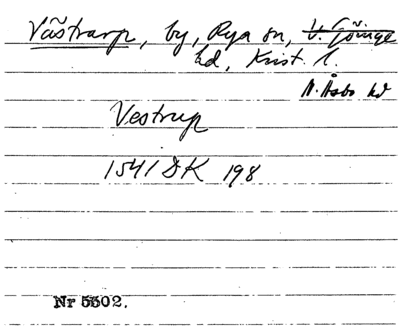 Västrarp, by, Rya sn, V. Göinge
hd, Krist. l.
N. Åsbo hd
Vestrup
1541 DK 198
Nr 5302.